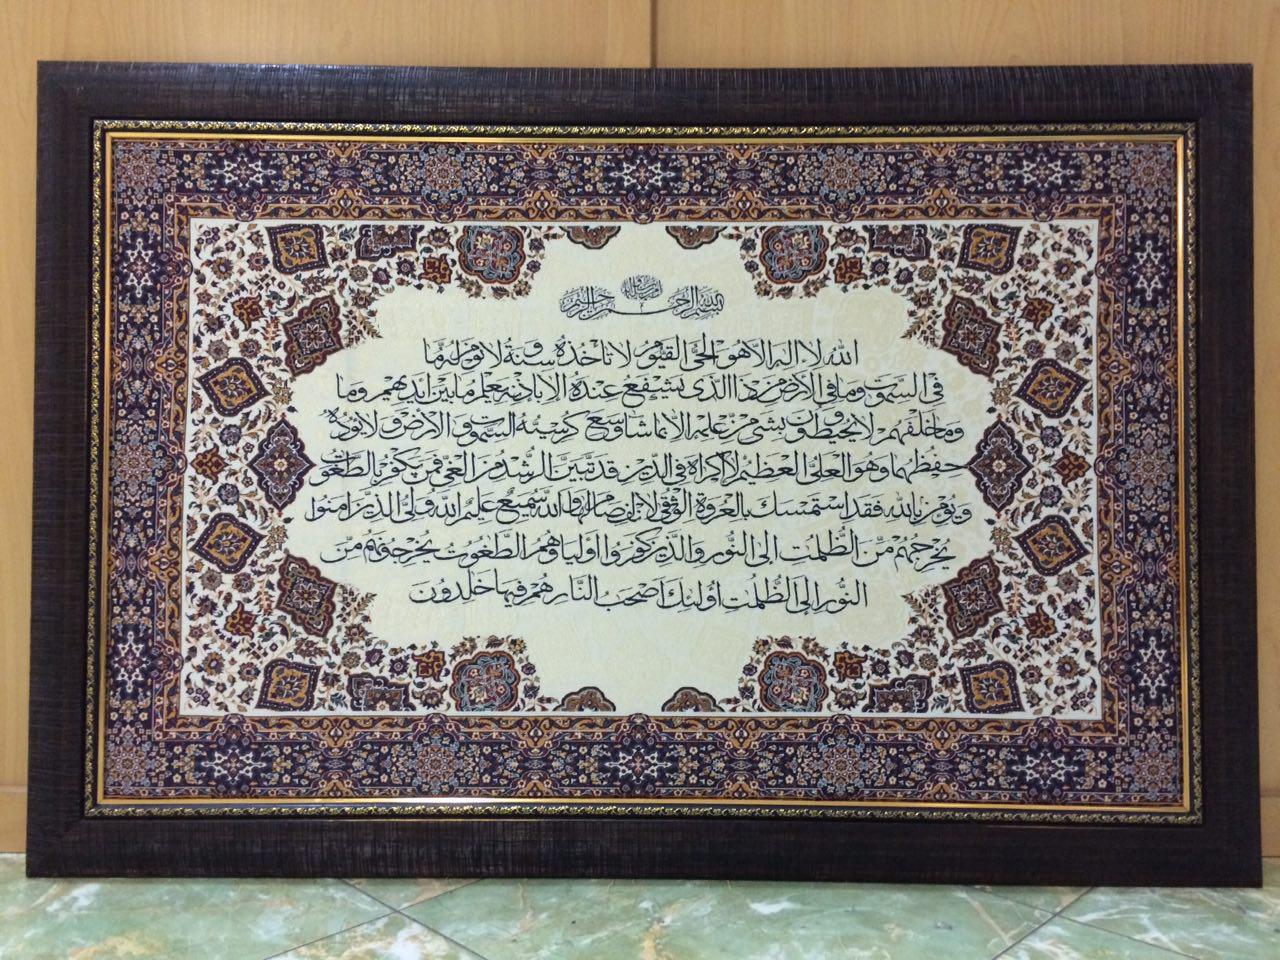 بسم الله الرحمن الرحيم
الله لا اله الا هو الحي القيوم لا تاخذه سنة و لا نوم له ما
في السموت وما في الارض من ذا الذي يشفع عنده الا باذنه يعلم ما بين ايديهم وما
وما خلفهم لا يحيطون بشئ من علمه الا بما شا وسع كرسيه السموت و الارض و لا يوده
حفظهما وهو العلي العظيم لا اكراه في الدين قد تبين الرشد من الغي فمن يكفر بالطغوت
ويؤمن بالله فقد استمسك بالعروة الوثقى لا انفصام لها و الله سميع عليم الله ولي الذين امنوا
يخرجهم من الظلمت الى النور والذين كفروا اولياوهم الطغوت يخرجونهم من
النور الى الظلمت اولئك اصحب النار هم فيها خلدون